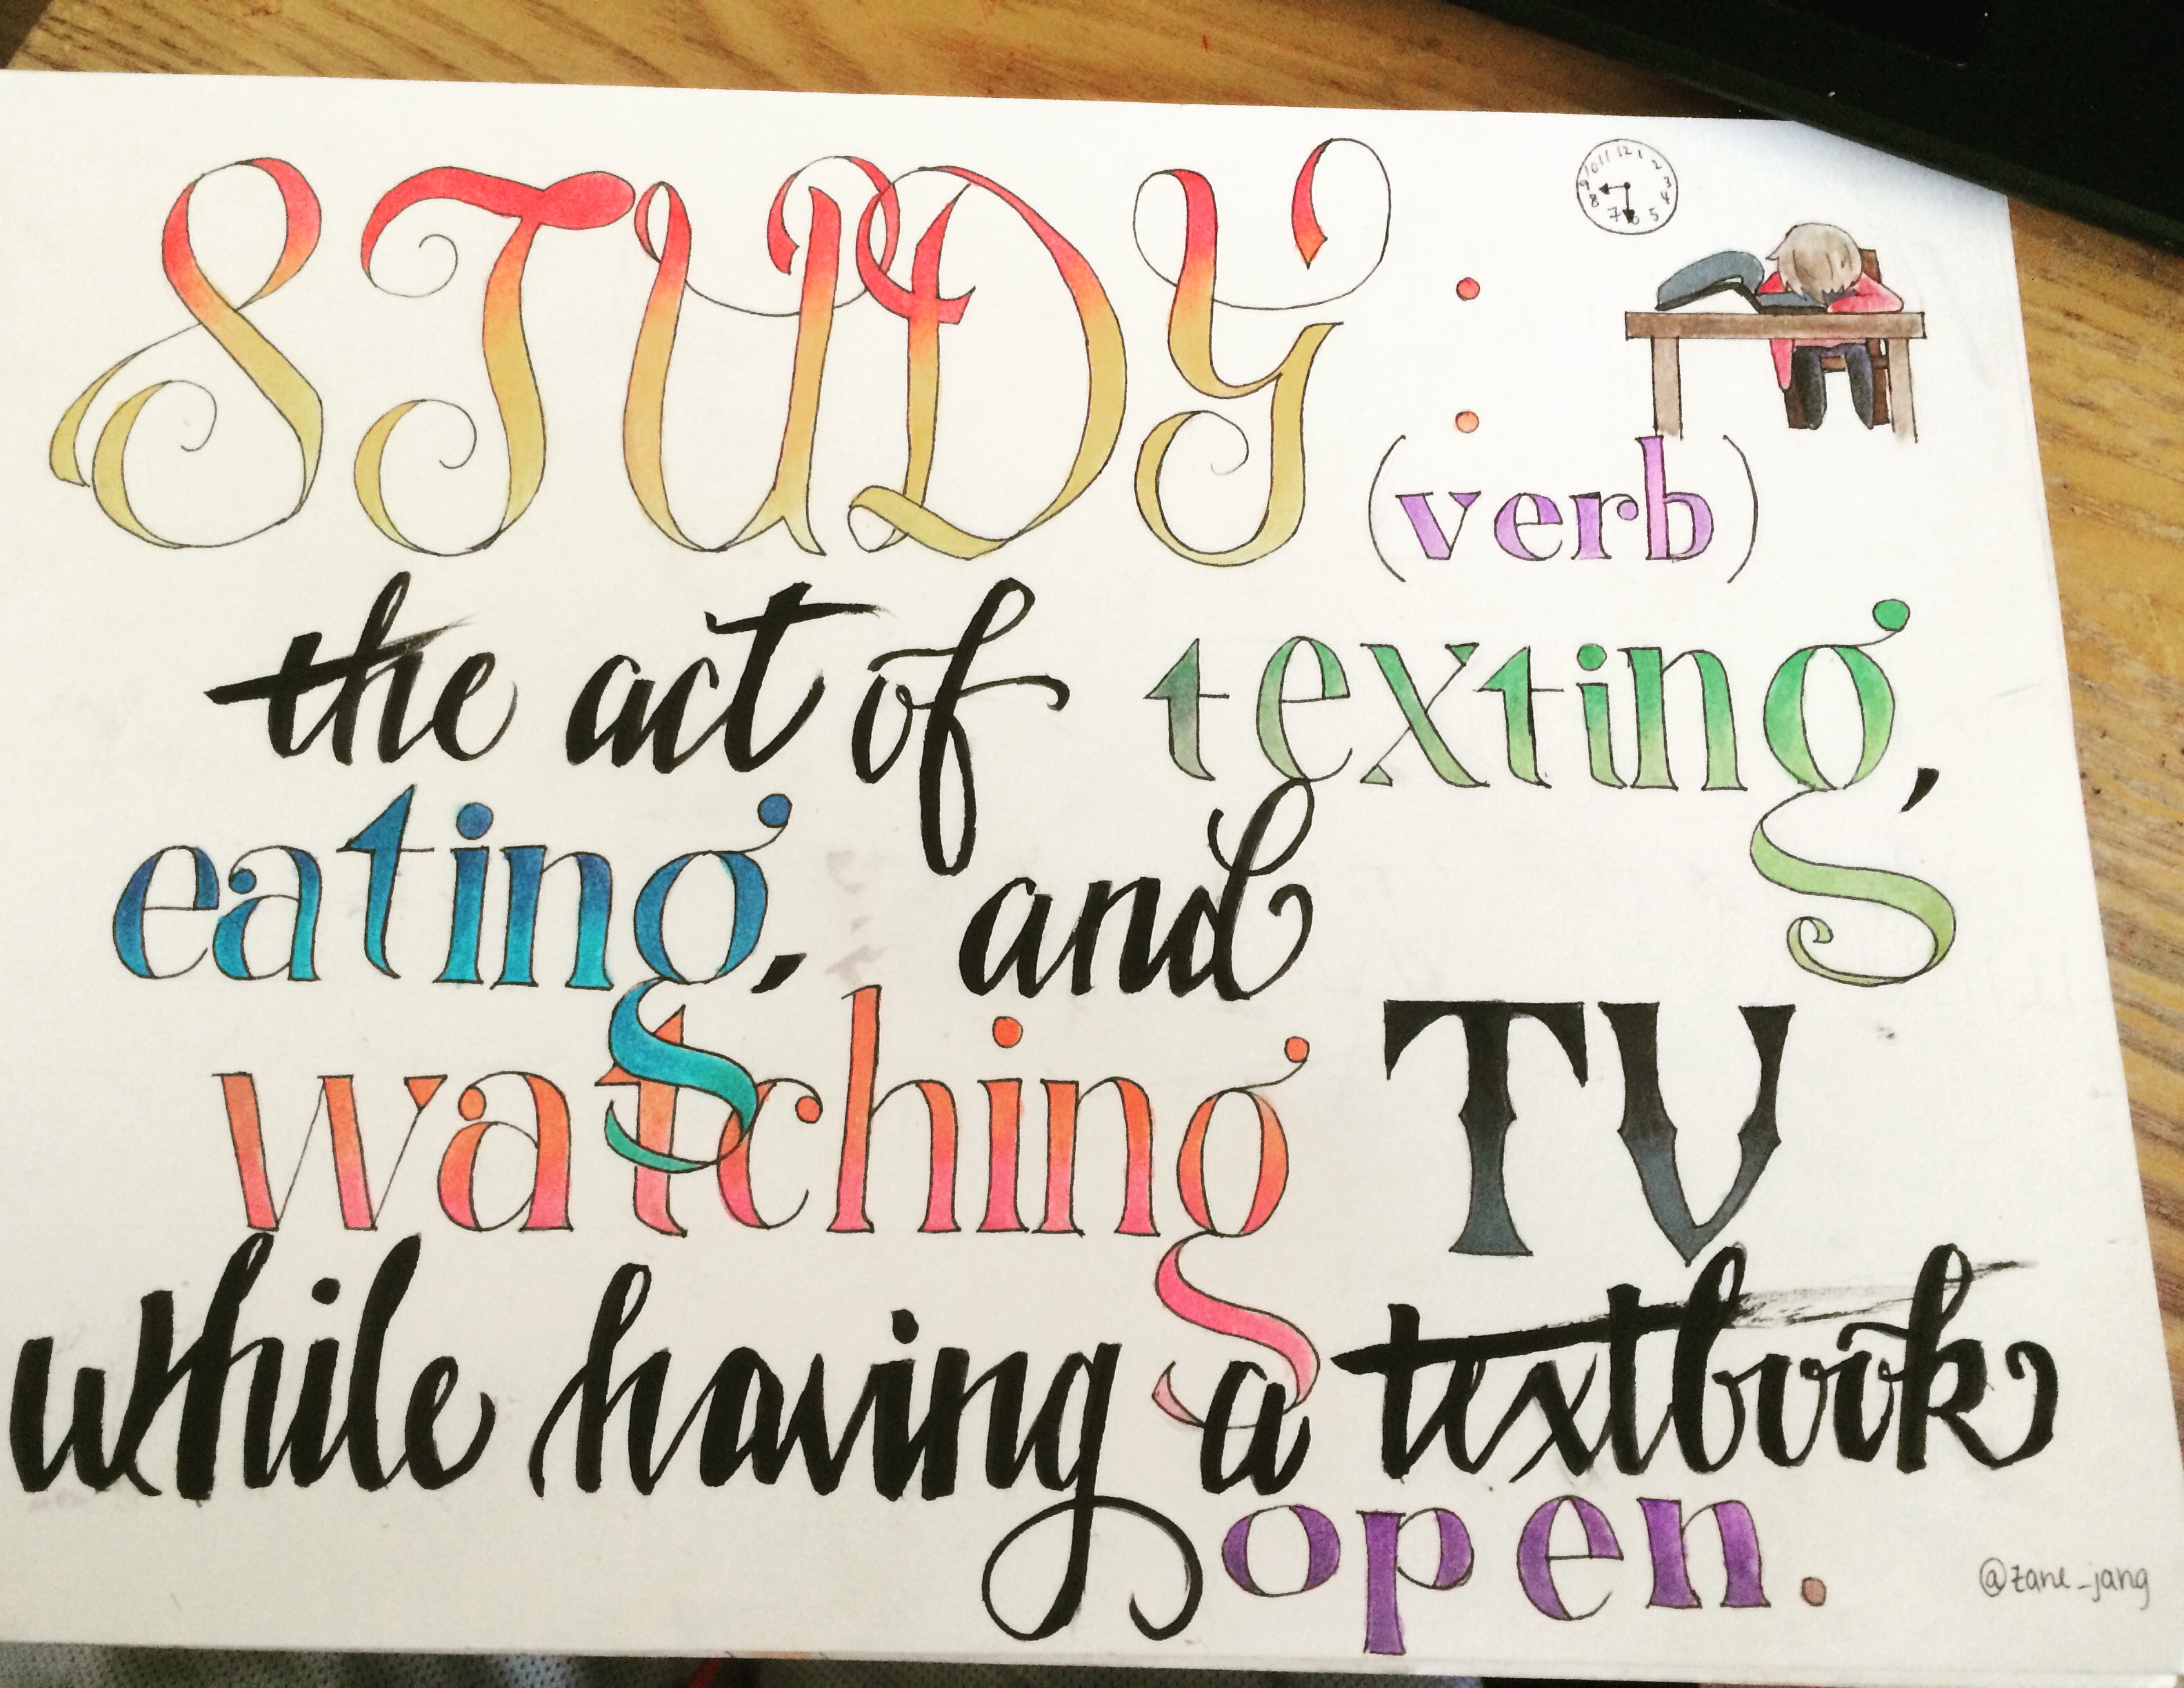 STUDY :
(verb)
the act of texting,
eating, and
watching TV
while having a textbook
open.
@zane_jang